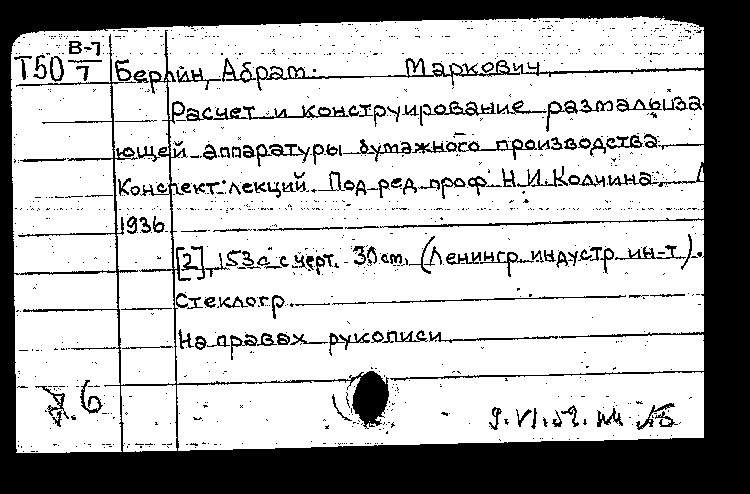 Т50 В-7/7 Берлин, Абрам Маркович.
Расчет и конструирование размалыва-
ющей аппаратуры бумажного производства.
Конспект лекций. Под ред. проф. Н.И. Колчина. Л
1936
[2], 153 с. с черт. 30 см. (Ленингр. индустр. ин-т).
Стеклогр.
На правах рукописи.
6
9.VI.59.